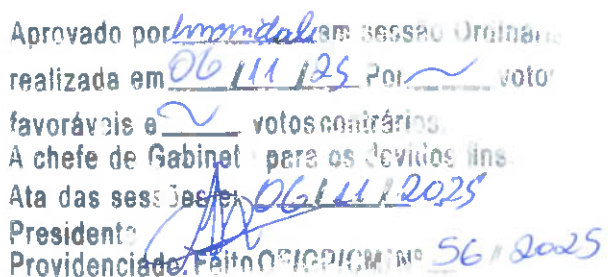 Aprovado por unanimidade em sessão Ordinári
realizada em 06/11/25 Por ~ voto
favoráveis e ~ votos contrários.
A chefe de Gabinet para os devidos fins
Ata das sessões 06/11/2025
Presidente
Providenciado. Feito OF/GP/CM/Nº 56/2025